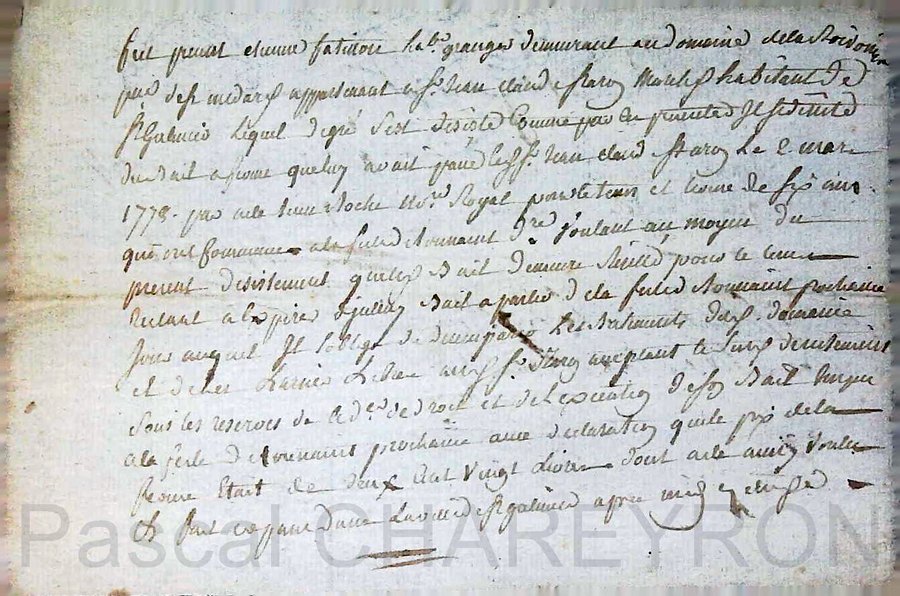 fut present etienne fatisson hab. granger demeurant au domaine de la
psse de St medard appartenant a Sr Jean Claude Staron Marchd habitant de
St Galmier Lequel de gré s'est désisté Comme par Ces presentes Il se désiste
du Bail a ferme que luy avait passé led. Sr Jean Claude Staron Le 2 mars
1778. par acte devant Roche Nore Royal pour le tems et terme de six ans
qui ont commencé a la fete de toussaint dre, voulant au moyen du
present desistement que led. Bail demeure résilié, pour le tems
restant a Expirer dudit Bail a partir de la fete de toussaint prochaine
Jour auquel Il s'oblige de deguerpir Les Batiments dud. domaine
et de les Laisser Libre aud. Sr Staron acceptant le susd. desistement
sous les reserves de de droit et de l'execution de son Bail Jusque
a la fete de toussaint prochaine avec déclaration que le prix de la
ferme Etait de deux Cent Vingt Livres dont acte ainsy voulu
et passé ce jour dans La ville de St galmier apres midy
Pascal CHAREYRON